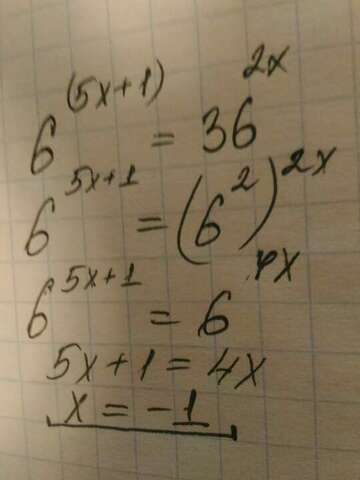 6^(5x+1) = 36^2x
6^5x+1 = (6^2)^2x
6^5x+1 = 6^4x
5x+1 = 4x
x = -1